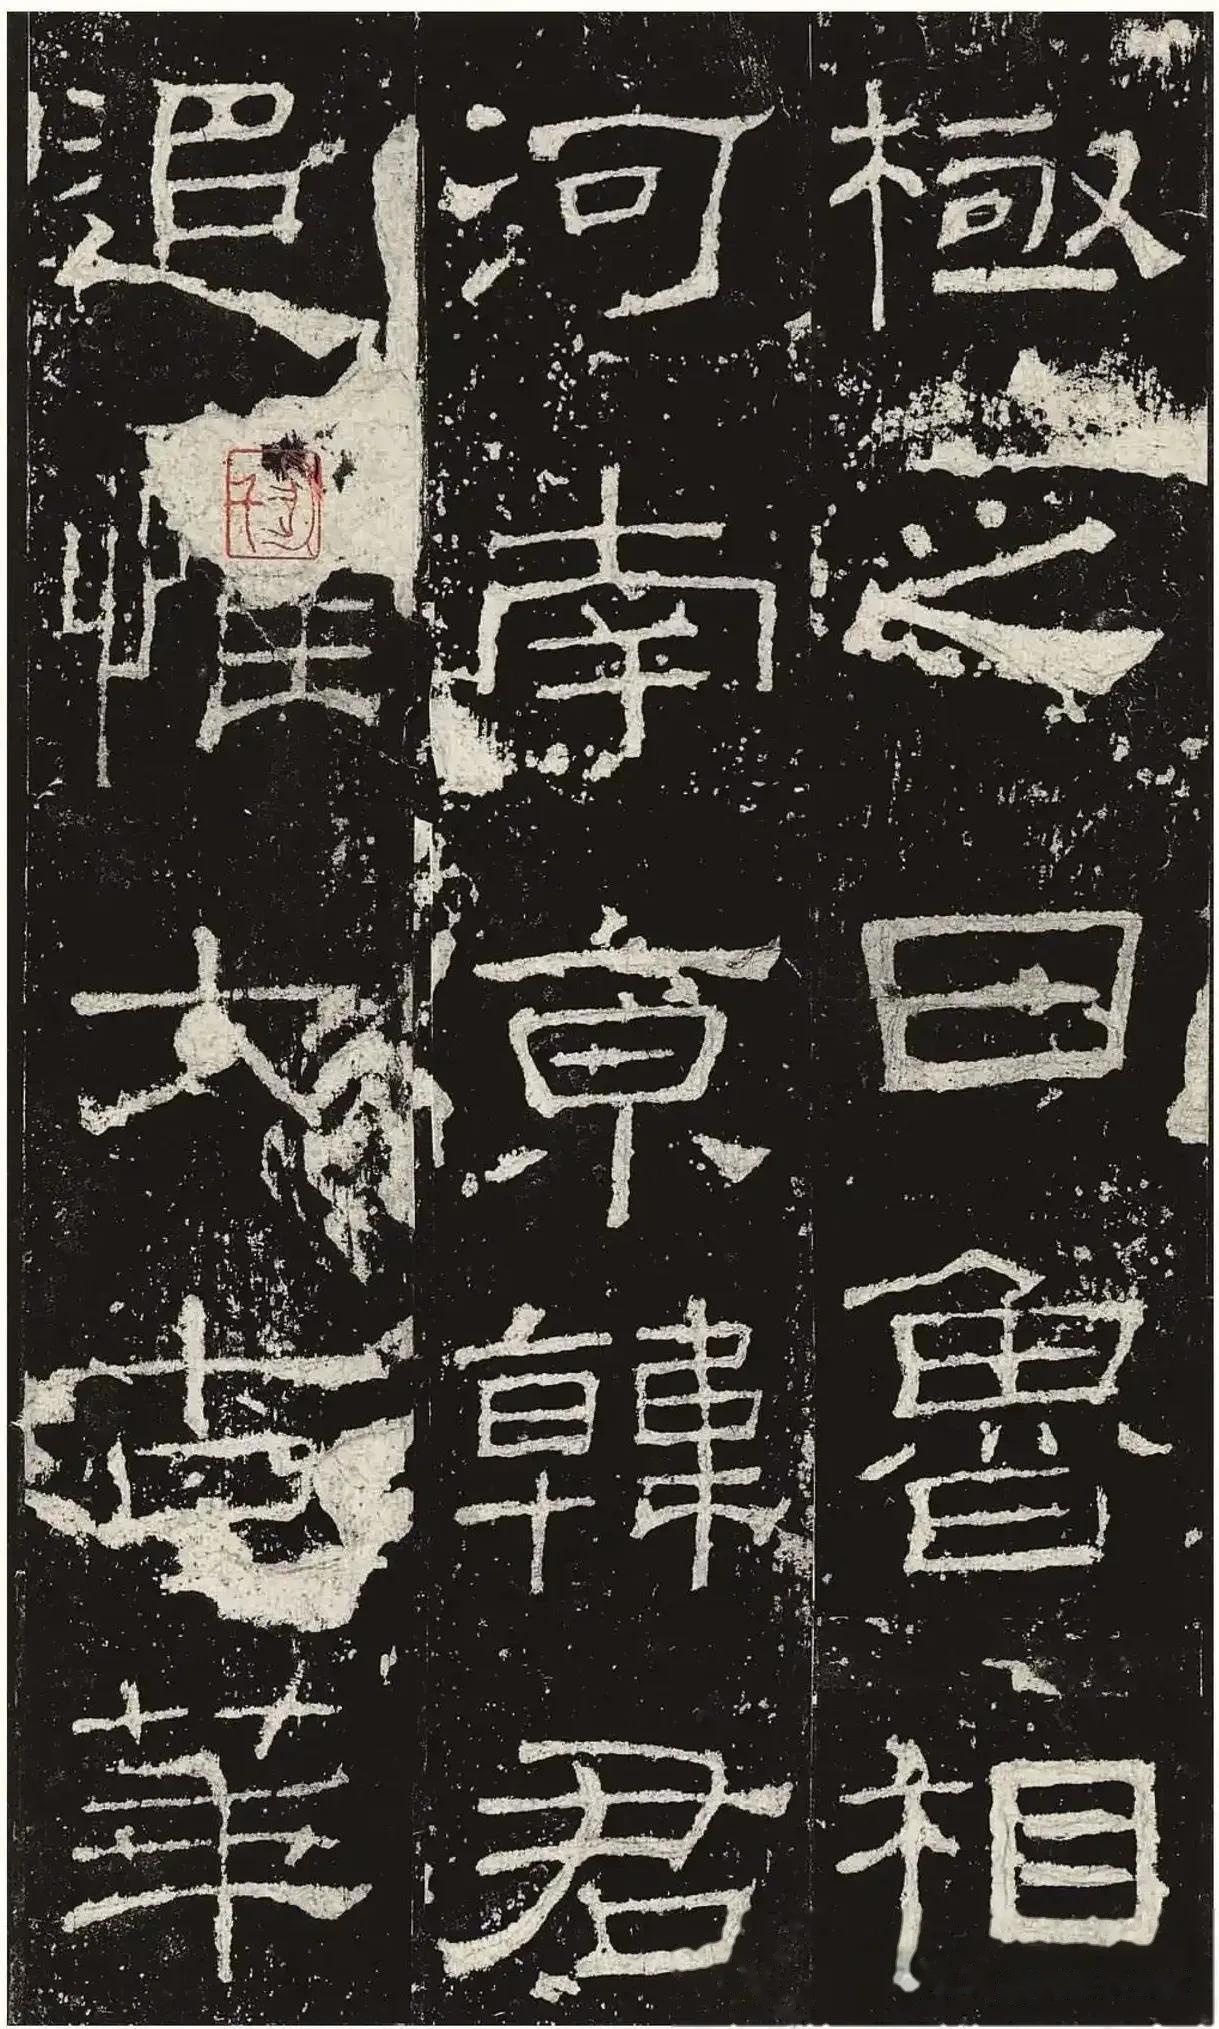 極之日魯相
河南京韓君
追惟太古華